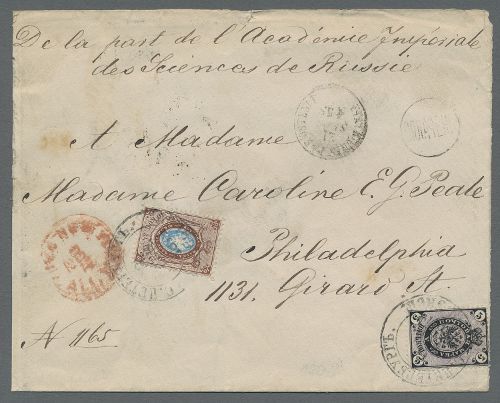 De la part de l'Académie Impériale
des Sciences de Russie
A Madame
Madame Caroline E. G. Peale
Philadelphia
1131. Girard St.
N 1165
5 5